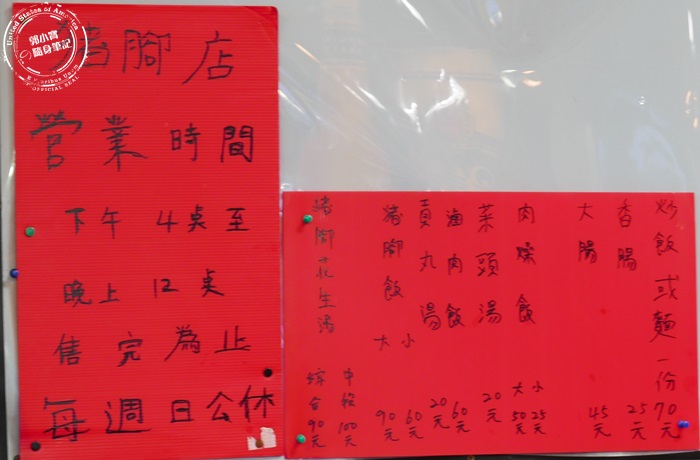 United States of America
郭小寶
隨身筆記
OFFICIAL SEAL
豬腳店
營業時間
下午 4桌至
晚上 12桌
售完為止
每週日公休
炒飯或麵一份70元
香腸 25元
大腸 45元
肉燥飯 大50元 小25元
菜頭湯 20元
滷肉飯 60元
貢丸湯 20元
豬腳飯 大90元 小60元
豬腳花生湯 綜合90元 中段100元